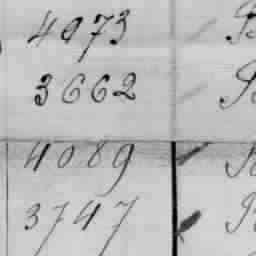 4073
3662
4089
3747